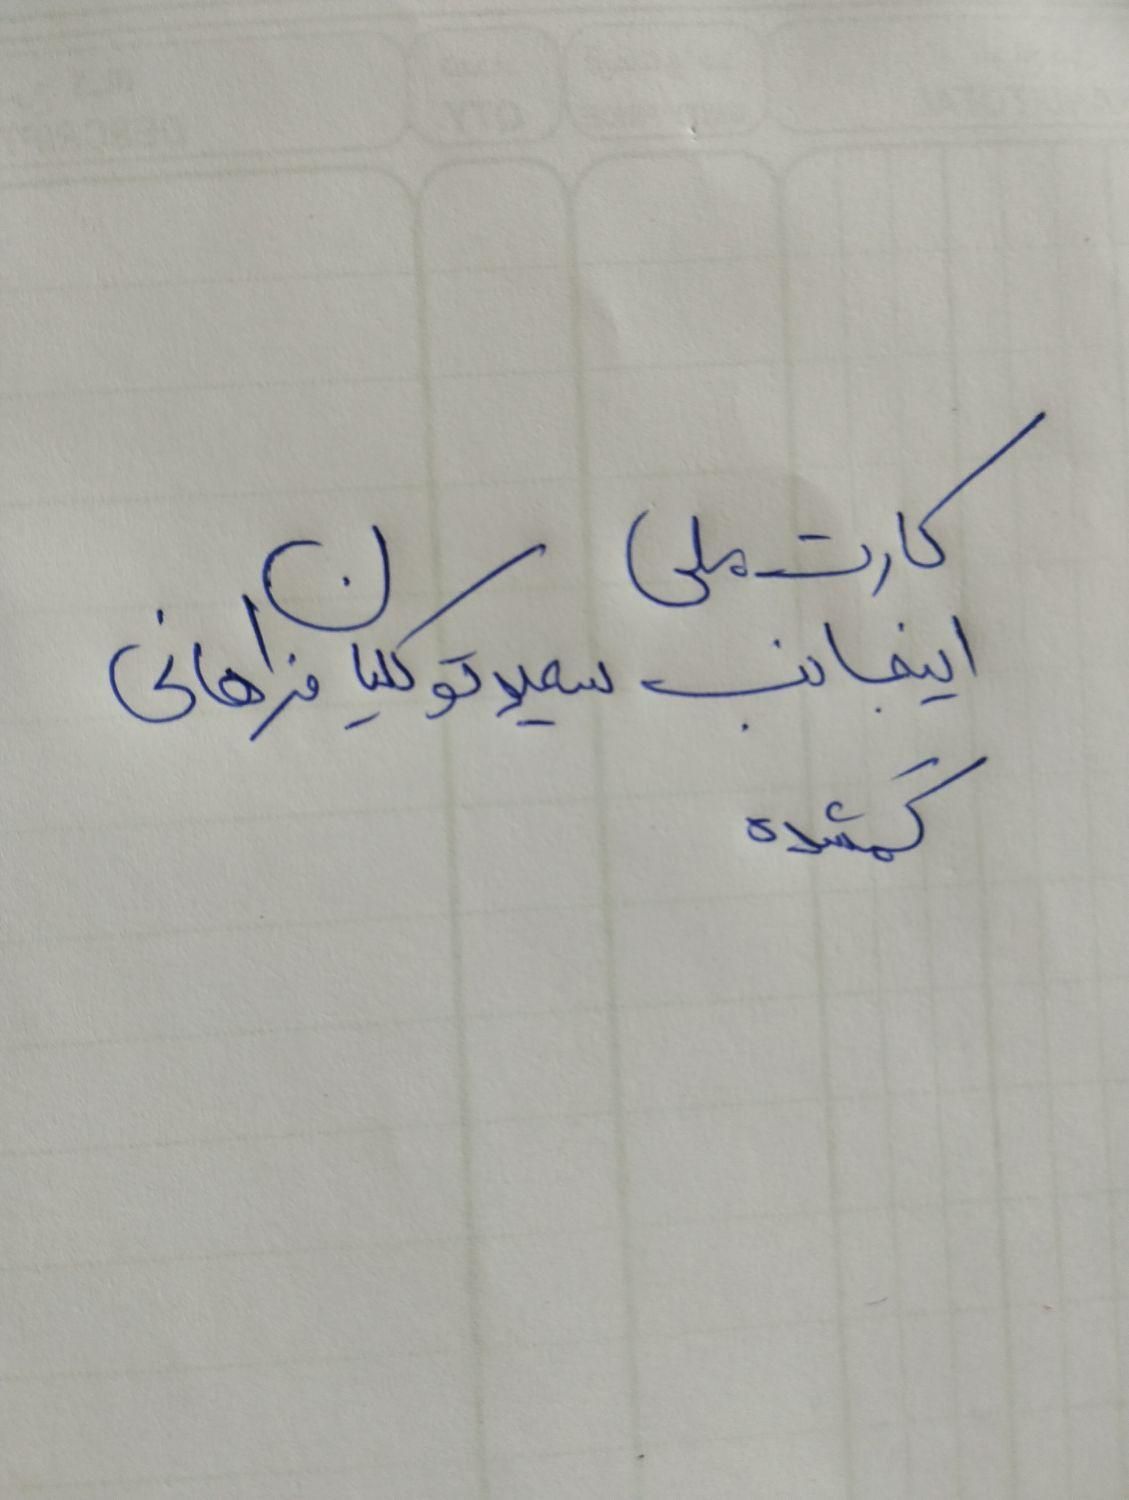 کارت ملی
اینجانب سهیلا توکلیان فراهانی
گمشده